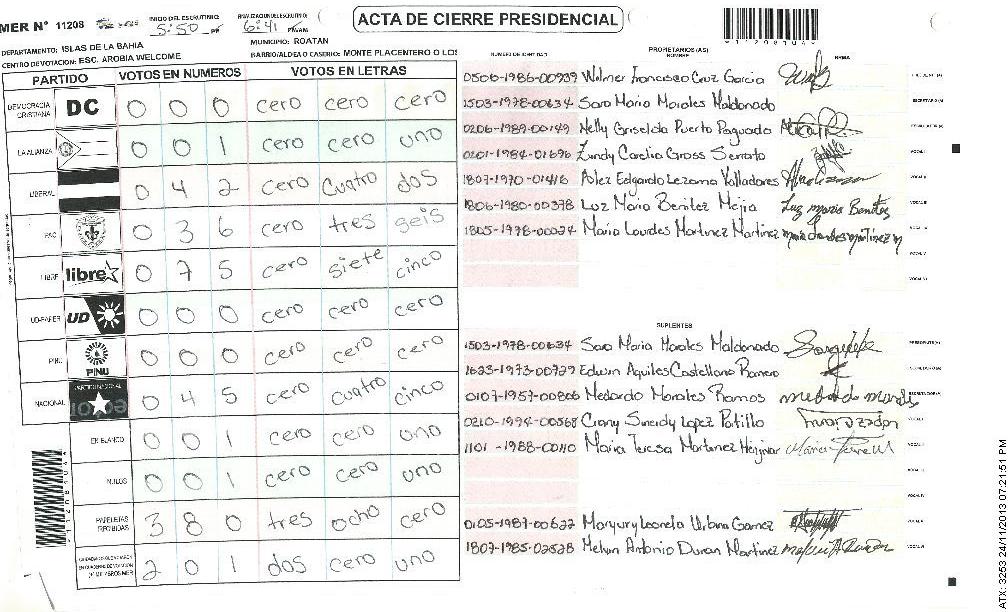 ACTA DE CIERRE PRESIDENCIAL
MER N° 11208
INICIO DEL ESCRUTINIO: 5:50 PM
FINALIZACION DEL ESCRUTINIO: 6:41 PM/AM
DEPARTAMENTO: ISLAS DE LA BAHIA
MUNICIPIO: ROATAN
CENTRO DE VOTACION: ESC. AROBIA WELCOME
BARRIO/ALDEA O CASERIO: MONTE PLACENTERO O LOS
PARTIDO VOTOS EN NUMEROS VOTOS EN LETRAS
DEMOCRACIA CRISTIANA DC 0 0 0 cero cero cero
LA ALIANZA 0 0 1 cero cero uno
LIBERAL 0 4 2 cero cuatro dos
PAC 0 3 6 cero tres seis
LIBRE libre 0 7 5 cero siete cinco
UD-FAPER UD 0 0 0 cero cero cero
PINU PINU 0 0 0 cero cero cero
NACIONAL PARTIDO NACIONAL 0 4 5 cero cuatro cinco
EN BLANCO 0 0 1 cero cero uno
NULOS 0 0 1 cero cero uno
PAPELETAS RECIBIDAS 3 8 0 tres ocho cero
2 0 1 dos cero uno
NUMERO DE IDENTIDAD PROPIETARIOS (AS) NOMBRE FIRMA
0506-1986-00939 Wilmer Francisco Cruz Garcia
1503-1978-00634 Sara Maria Morales Maldonado
0206-1989-00149 Nelly Griselda Puerto Paguado
0201-1984-01696 Zundy Carelia Gross Serrato
1807-1970-01416 Alex Edgardo Lezama Valladares
1806-1980-00378 Luz Maria Benitez Mejia Luz maria Benites
1805-1978-00024 Maria Lourdes Martinez Martinez
SUPLENTES
1503-1978-00634 Sara Maria Morales Maldonado
1623-1973-00729 Edwin Aquiles Castellano Romero
0107-1957-00806 Medardo Morales Ramos medardo morales
0210-1994-00568 Lopez Portillo
1101-1988-00110 Maria Teresa Martinez
0105-1987-00622 Maryury Leonela Urbina Gomez
1807-1985-02528 Melvin Antonio Duran Martinez
11208044
ATX: 3253 24/11/2013 07:21:51 PM